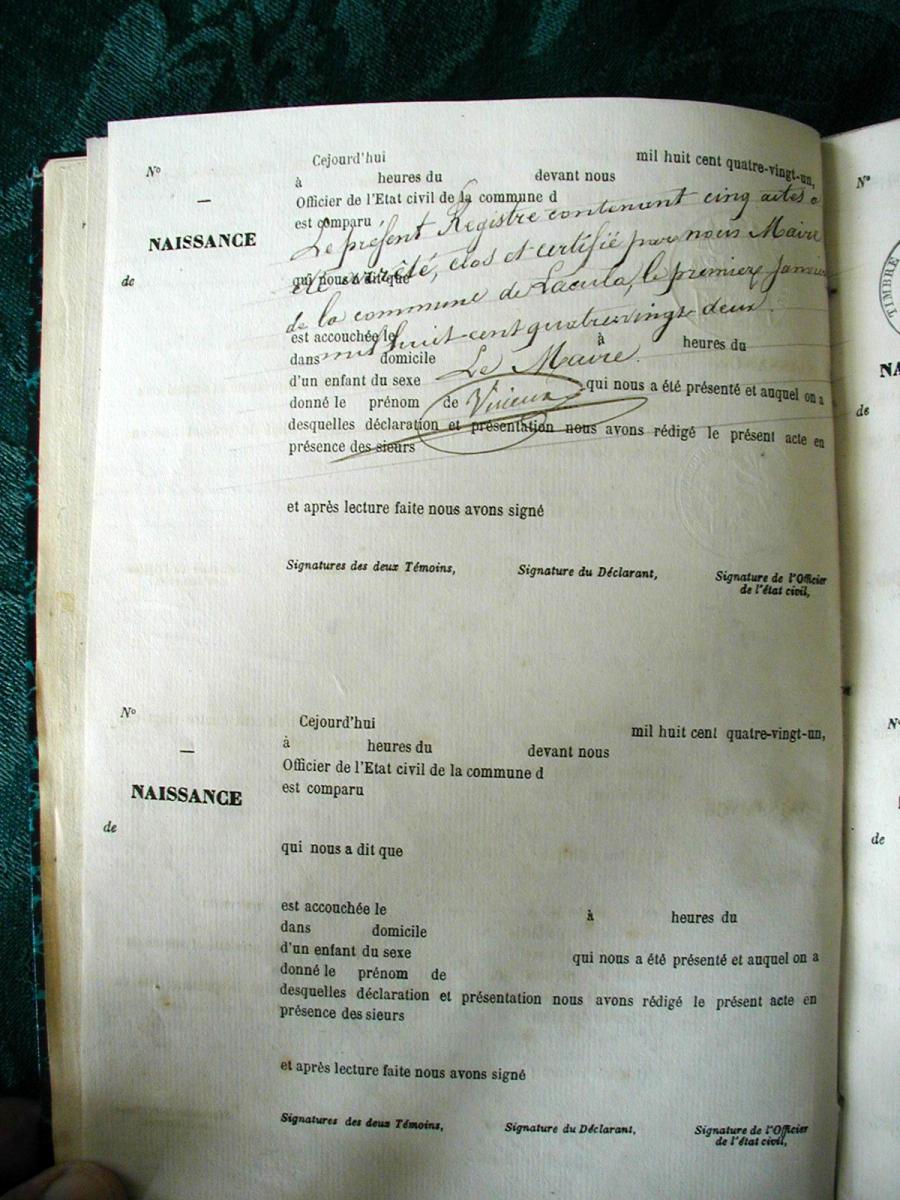 Nº
Cejourd'hui mil huit cent quatre-vingt-un,
à heures du devant nous
Officier de l'Etat civil de la commune d
est comparu
Le présent Registre contenant cinq actes a
—
NAISSANCE
de
qui nous a dit que
été arrêté, clos et certifié par nous Maire
de la commune de Lacula, le premier Janvier
est accouchée le à heures du
mil huit-cent quatre vingt deux.
dans domicile
Le Maire.
d'un enfant du sexe qui nous a été présenté et auquel on a
donné le prénom de
desquelles déclaration et présentation nous avons rédigé le présent acte en
présence des sieurs
et après lecture faite nous avons signé
Signatures des deux Témoins, Signature du Déclarant, Signature de l'Officier
de l'état civil,
Nº
Cejourd'hui mil huit cent quatre-vingt-un,
à heures du devant nous
Officier de l'Etat civil de la commune d
est comparu
—
NAISSANCE
de
qui nous a dit que
est accouchée le à heures du
dans domicile
d'un enfant du sexe qui nous a été présenté et auquel on a
donné le prénom de
desquelles déclaration et présentation nous avons rédigé le présent acte en
présence des sieurs
et après lecture faite nous avons signé
Signatures des deux Témoins, Signature du Déclarant, Signature de l'Officier
de l'état civil,
Nº
TIMBRE
NA
de
Nº
de